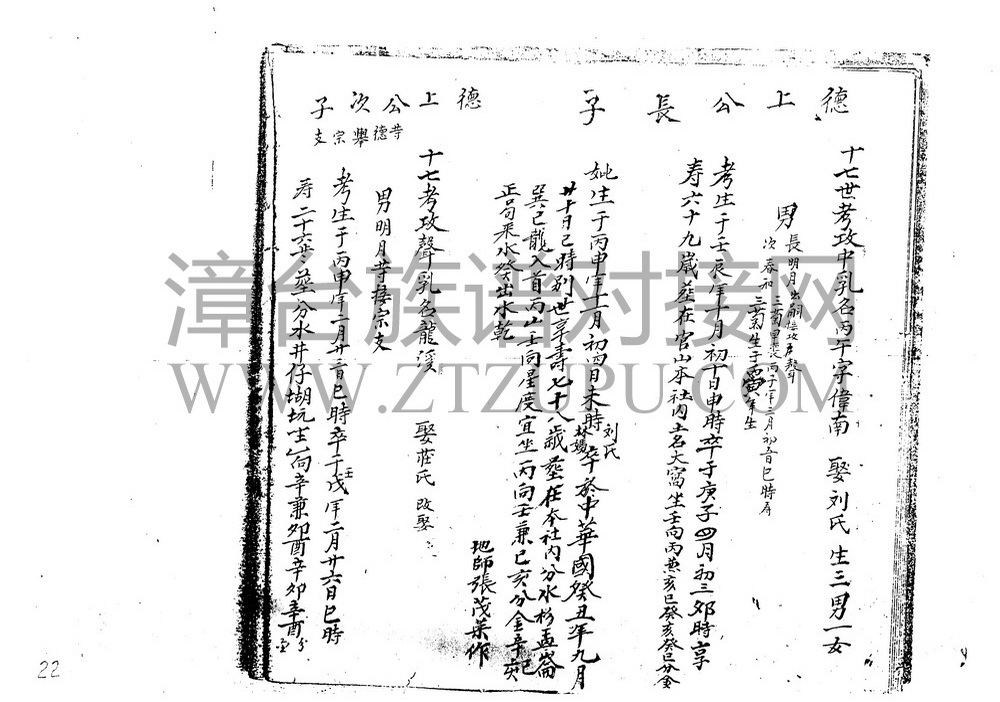 德上公長子
十七世考攻中乳名丙午字偉南 娶刘氏 生三男一女
男
長明月出嗣
次春和
三菊生于
考生于壬辰年十月初十日申時卒于庚子四月初三卯時享
寿六十九歲塟在官山本社内土名大窩坐壬向丙兼亥巳癸亥癸巳分金
妣生于丙申年二月初四日未時卒於中華國癸丑年九月
刘氏
廿十日巳時别世享壽七十八歲塟在本社内分水
巽巳龍入首丙山壬向星度宜坐丙向壬兼巳亥分金辛
正局乘水癸出水乾
地師張茂 作
德上公次子
十七考攻聲乳名龍溪 娶莊氏 改娶
男明月 接宗支
考生于丙申年二月廿三日巳時卒于壬戌年二月廿六日巳時
寿二十六塟分水井仔湖坑 山向辛兼卯酉辛卯辛酉分金
22
漳台族谱对接网
WWW.ZTZUPU.COM